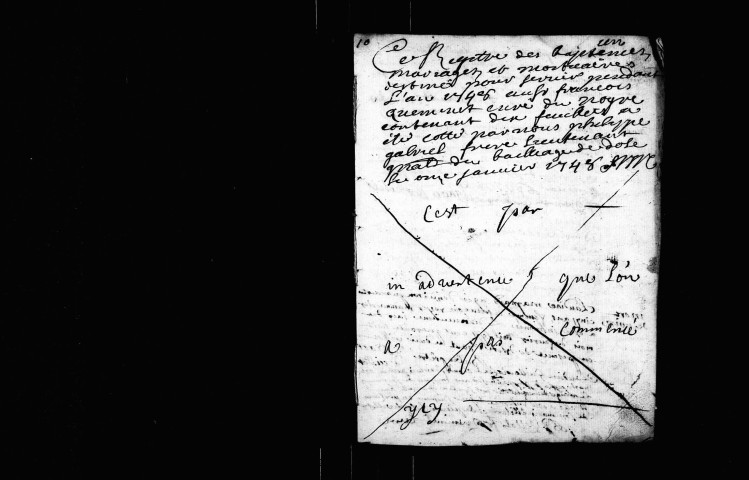 10
un
Ce Registre des baptemes,
mariages et mortuaires
destiné pour servir pendant
L'an 1748 au Sr francois
quemenet curé du noyre
contenant dix feuillets a
été cotté par nous philippe
gabriel frere Lieutenant
gnal du bailliage de dole
le onze janvier 1748
C'est par
in advertence que L'on
a pas Commencé
ycy